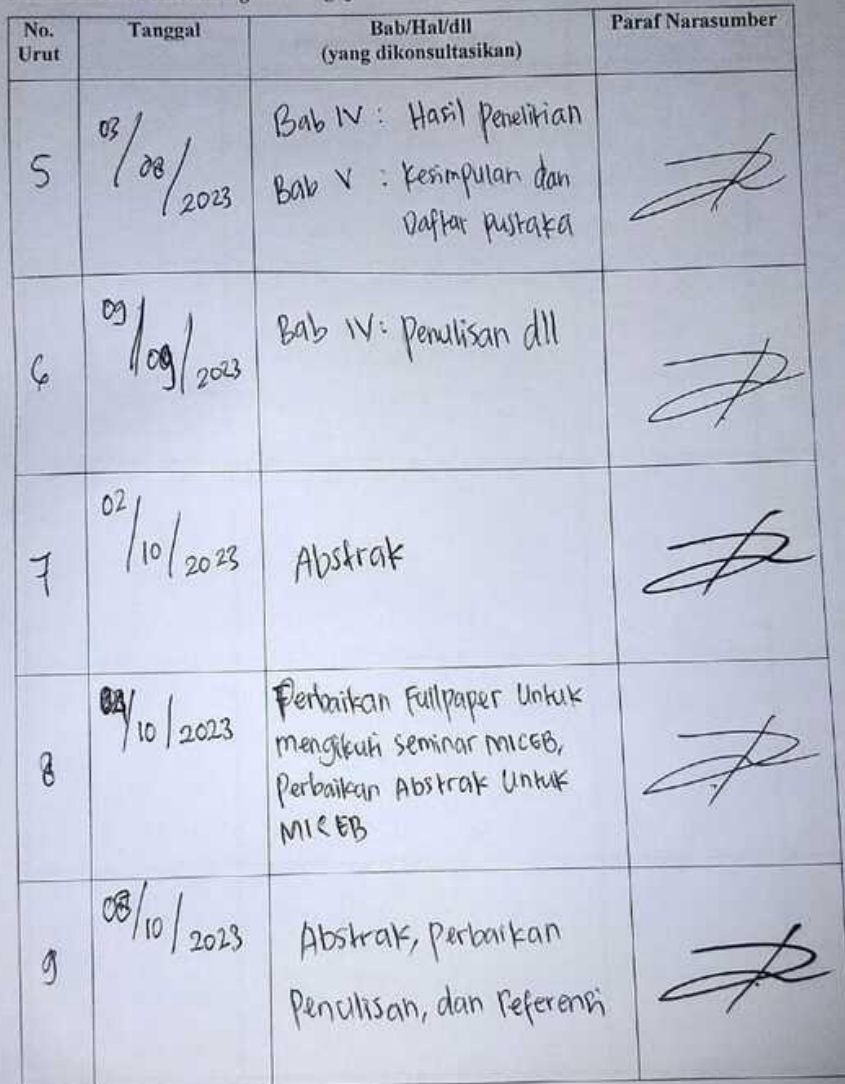 No. Urut
Tanggal
Bab/Hal/dll
(yang dikonsultasikan)
Paraf Narasumber
5
03/08/2023
Bab IV : Hasil Penelitian
Bab V : Kesimpulan dan
Daftar Pustaka
6
09/09/2023
Bab IV: Penulisan dll
7
02/10/2023
Abstrak
8
/10/2023
Perbaikan Fullpaper Untuk
mengikuti seminar MICEB,
Perbaikan Abstrak Untuk
MICEB
9
08/10/2023
Abstrak, Perbaikan
Penulisan, dan Referensi